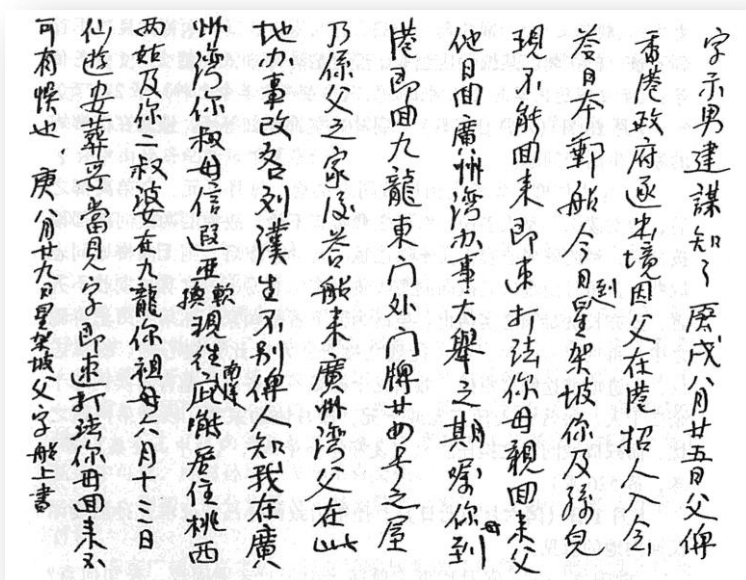 字示男建謀知了 庚戌八月廿五日父俾
香港政府逐出境因父在港招人入会
答日本郵船今日到星架坡你及孫兒
現不能回来即速打法你母親回来父
他日回廣州灣办事大舉之期嘱你母到
港即回九龍東门外门牌廿四号之屋
乃係父之家后答船来廣州灣父在此
地办事改名列漢生不别俾人知我在廣
州灣你叔母信 现往南洋 能居住桃西
两姑及你叔婆在九龍你祖母六月十三日
仙遊安葬妥當見字即速打法你母回来不
可有悞也 庚八月廿九日星架坡父字船上書